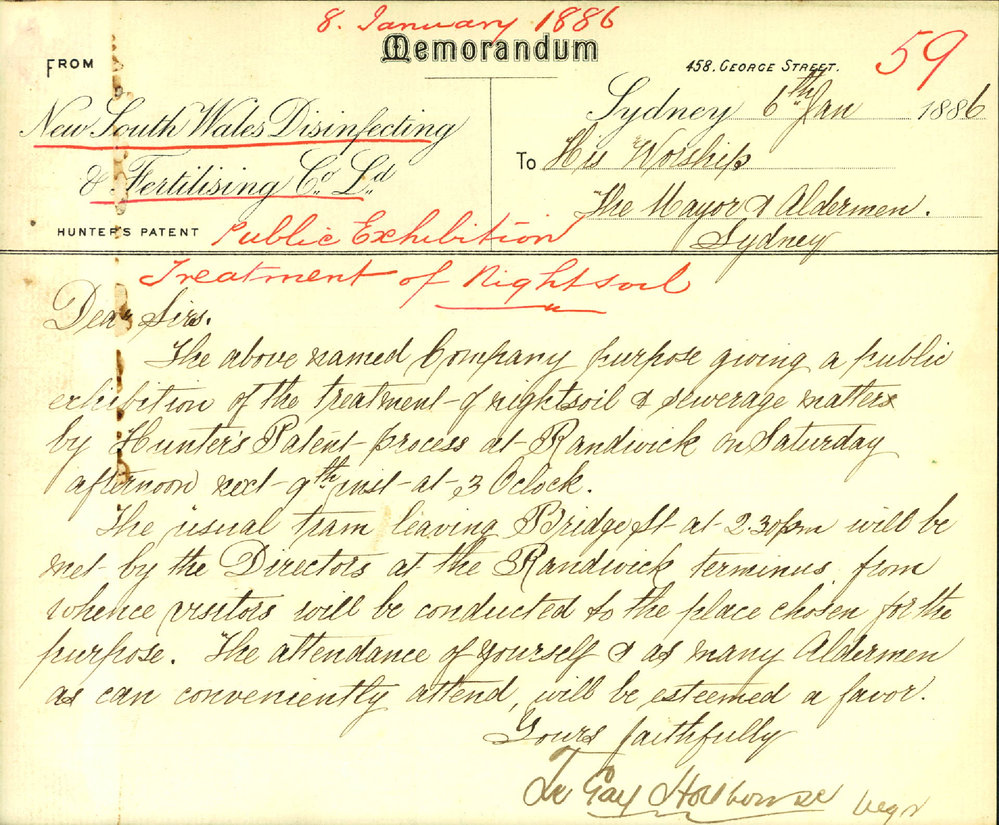 8. January 1886
Memorandum
59
FROM
458. GEORGE STREET.
New South Wales Disinfecting
& Fertilising Co. Ld.
HUNTER'S PATENT
Sydney 6th Jan 1886
To His Worship
The Mayor & Aldermen.
Sydney
Public Exhibition
Treatment of Nightsoil
Dear Sirs.
The above named Company purpose giving a public
exhibition of the treatment of nightsoil & sewerage matters
by Hunter's Patent process at Randwick on Saturday
afternoon next 9th inst at 3 Oclock.
The usual tram leaving Bridge St at 2.30pm will be
met by the Directors at the Randwick terminus from
whence visitors will be conducted to the place chosen for the
purpose. The attendance of yourself & as many Aldermen
as can conveniently attend, will be esteemed a favor.
Yours faithfully
Gay